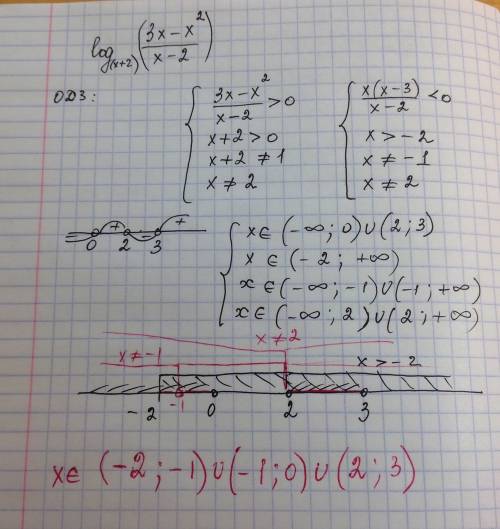 log₍ₓ₊₂₎((3x-x²)/(x-2))
ОДЗ:
{ (3x-x²)/(x-2) >0
x+2>0
x+2 ≠1
x≠2
{ x(x-3)/(x-2) <0
x>-2
x≠-1
x≠2
+ - +
0 2 3
{ x∈(-∞;0)∪(2;3)
x∈(-2;+∞)
x∈(-∞;-1)∪(-1;+∞)
x∈(-∞;2)∪(2;+∞)
x≠2
x≠-1 x>-2
-2 -1 0 2 3
x∈ (-2;-1)∪(-1;0)∪(2;3)